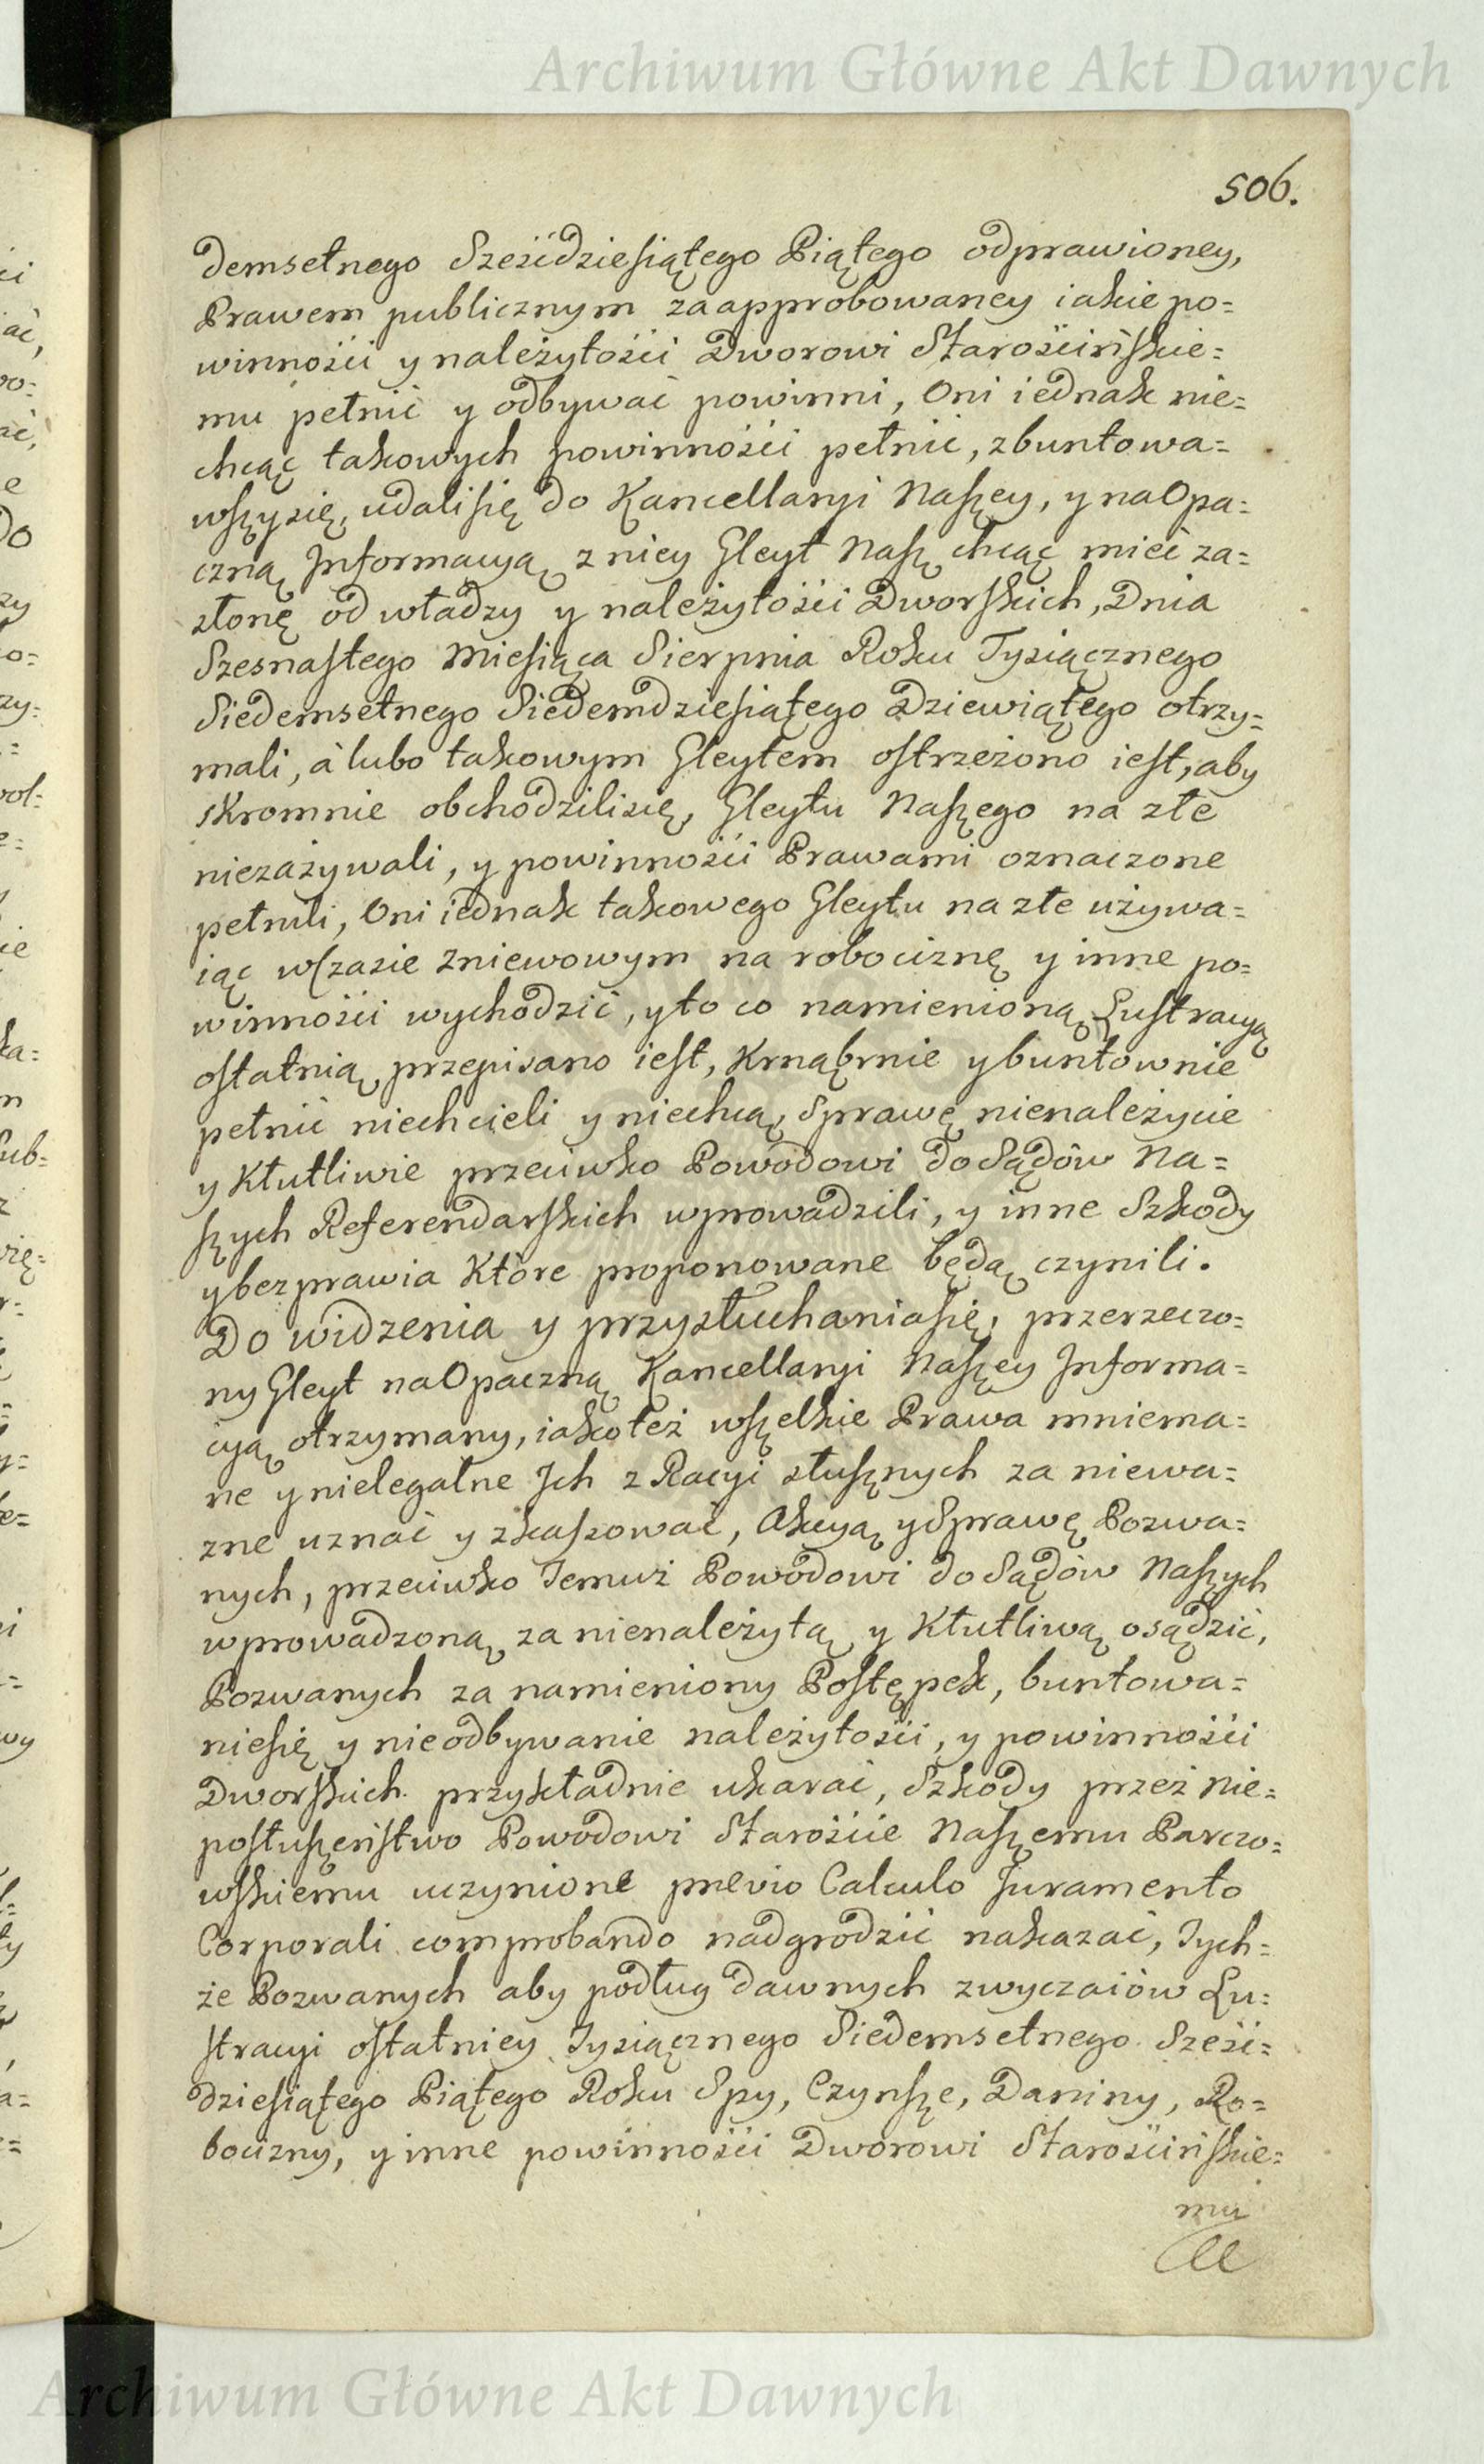 Archiwum Główne Akt Dawnych
506.
demsetnego Sześćdziesiątego Piątego odprawioney,
Prawem publicznym zaapprobowaney iakie po=
winności y należytości Dworowi Starościńskie=
mu pełnić y odbywać powinni, Oni iednak nie=
chcąc takowych powinności pełnić, zbuntowa=
wszysię, udalisię do Kancellaryi Naszey, y na Opa=
czną Informacyą z niey Gleyt Nasz chcąc mieć za=
słonę od władzy y należytości Dworskich, Dnia
Szesnastego Miesiąca Sierpnia Roku Tysiącznego
Siedemsetnego Siedemdziesiątego Dziewiątego otrzy=
mali, à lubo takowym Gleytem ostrzeżono iest, aby
skromnie obchodzilisię, Gleytu Naszego na złe
niezażywali, y powinności Prawami oznaczone
pełnili, Oni iednak takowego Gleytu na złe używa=
iąc w Czasie zniewowym na robociznę y inne po=
winności wychodzić, y to co namienioną Lustracyą
ostatnią przepisano iest, krnąbrnie y buntownie
pełnić niechcieli y niechcą, Sprawę nienależycie
y kłutliwie przeciwko Powodowi do Sądów Na=
szych Referendarskich wprowadzili, y inne Szkody
y bezprawia które proponowane będą czynili.
Do widzenia y przysłuchaniasię, przerzeczo=
ny Gleyt na Opaczną Kancellaryi Naszey Informa=
cyą otrzymany, iakoteż wszelkie Prawa mniema=
ne y nielegalne Ich z Racyi słusznych za niewa=
zne uznać y zkaszować, Akcyą y Sprawę Pozwa=
nych, przeciwko Temuż Powodowi do Sądów Naszych
wprowadzoną za nienależytą y kłutliwą osądzić,
Pozwanych za namieniony Postępek, buntowa=
niesię y nieodbywanie należytości, y powinności
Dworskich przykładnie ukarać, Szkody przez nie=
posłuszeństwo Powodowi Starośćie Naszemu Parczo=
wskiemu uczynione prævio Calculo Juramento
Corporali comprobando nadgrodzić nakazać, Tych=
że Pozwanych aby podług dawnych zwyczaiów Lu=
stracyi ostatniey Tysiącznego Siedemsetnego Sześć=
dziesiątego Piątego Roku Spy, Czynsze, Daniny, Ro=
bocizny, y inne powinności Dworowi Starościńskie=
mu
Archiwum Główne Akt Dawnych